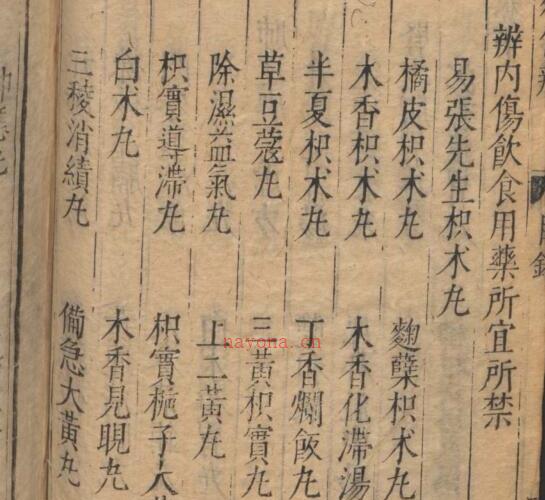 辨内傷飲食用藥所宜所禁
易張先生枳术丸
橘皮枳术丸 麴蘖枳术丸
木香枳术丸 木香化滯湯
半夏枳术丸 丁香爛飯丸
草豆蔻丸 三黃枳實丸
除濕益氣丸 上二黃丸
枳實導滯丸 枳實梔子大
白术丸 木香見晛丸
三稜消績丸 備急大黃丸
nayona.cn